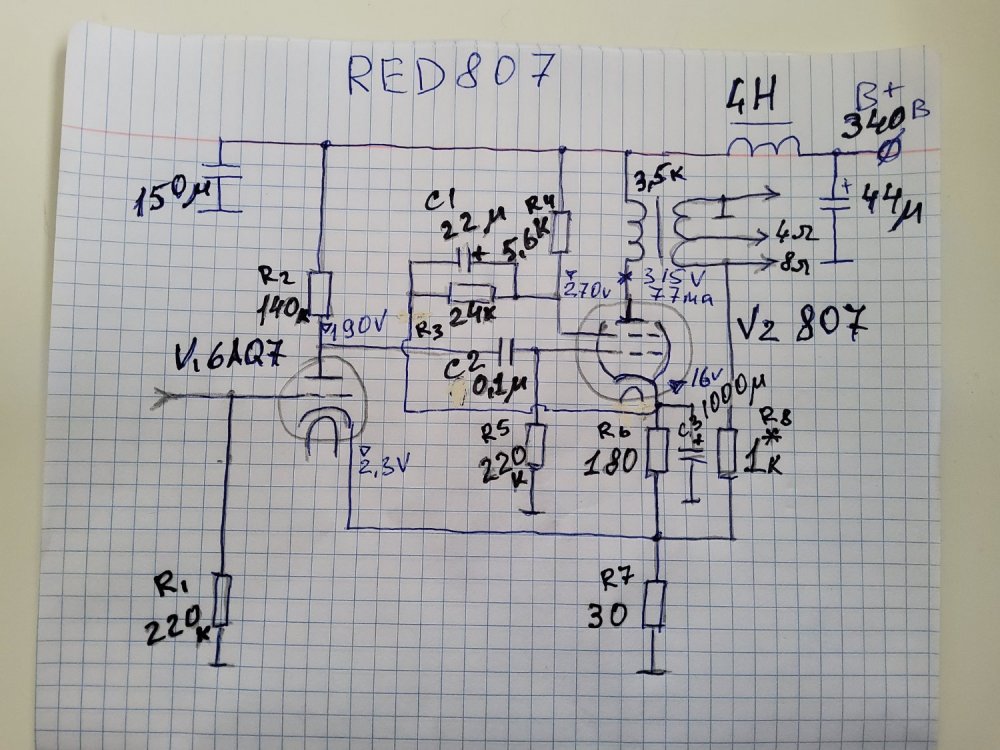 RED807
4H
B+
340В
150μ
C1
22μ
+
R4
5,6K
3,5K
+
44μ
I
4Ω
8Ω
R2
140K
R3
24K
270V
315V
77ma
190V
V1 6AQ7
C2
0,1μ
V2 807
16V
1000μ
C3
+
R5
220K
R6
180
R8
*
1K
2,3V
R1
220K
R7
30